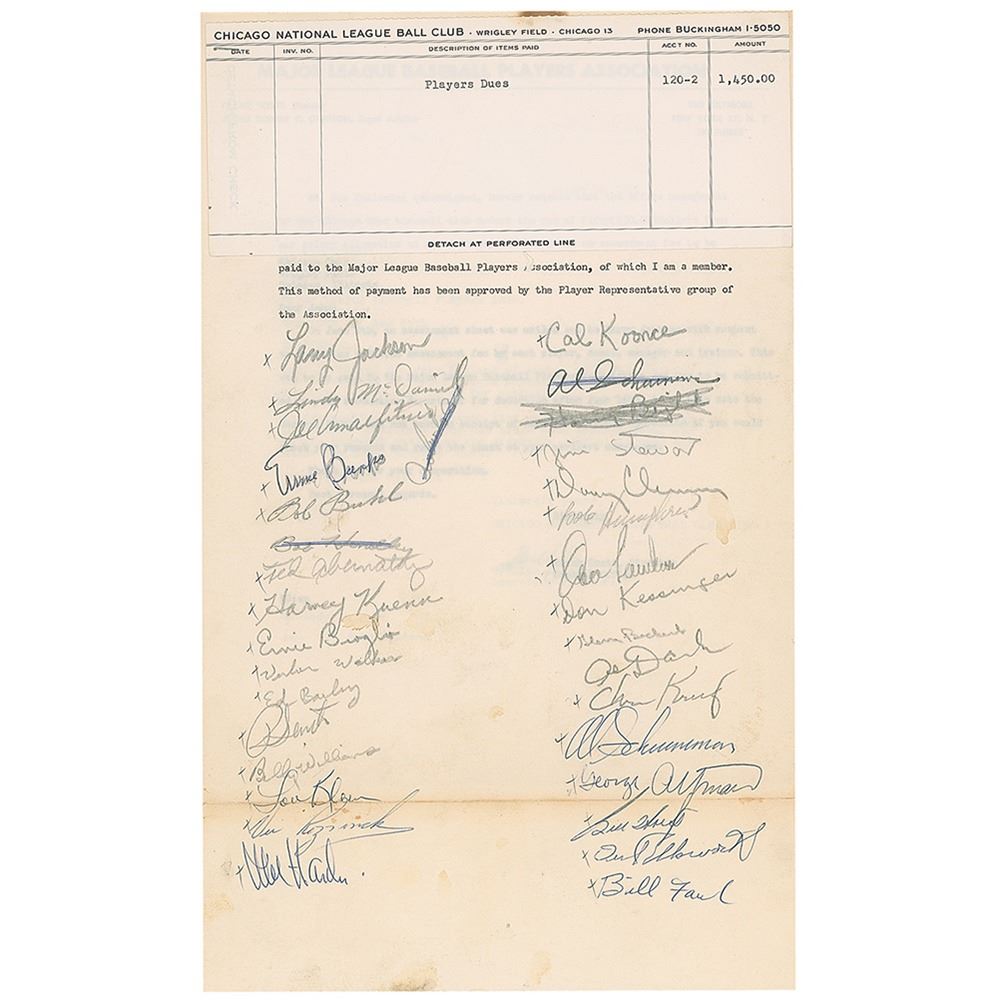 CHICAGO NATIONAL LEAGUE BALL CLUB · WRIGLEY FIELD · CHICAGO 13 PHONE BUCKINGHAM 1-5050
DATE INV. NO. DESCRIPTION OF ITEMS PAID ACCT NO. AMOUNT
MAJOR LEAGUE BASEBALL PLAYERS ASSOCIATION
Players Dues 120-2 1,450.00
DETACH AT PERFORATED LINE
paid to the Major League Baseball Players Association, of which I am a member.
This method of payment has been approved by the Player Representative group of
the Association.
x Larry Jackson
x Lindy McDaniel
x Joe Amalfitano
x Ernie Banks
x Bob Buhl
Bob Hendley
x Ted Abernathy
x Harvey Kuenn
x Ernie Broglio
x Verlon Walker
x Ed Bailey
x Santo
x Billy Williams
x Lou Klein
x Vic Roznovsky
x Mel Harder
x Cal Koonce
Al Scheuneman
Harry Bright
x Jimmy Stewart
x Doug Clemens
x Bob Humphreys
x Don Landrum
x Don Kessinger
x Glenn Beckert
Al Dark
x Chris Krug
x Al Scheuneman
x George Altman
Bill Hoeft
x Dick Ellsworth
x Bill Faul